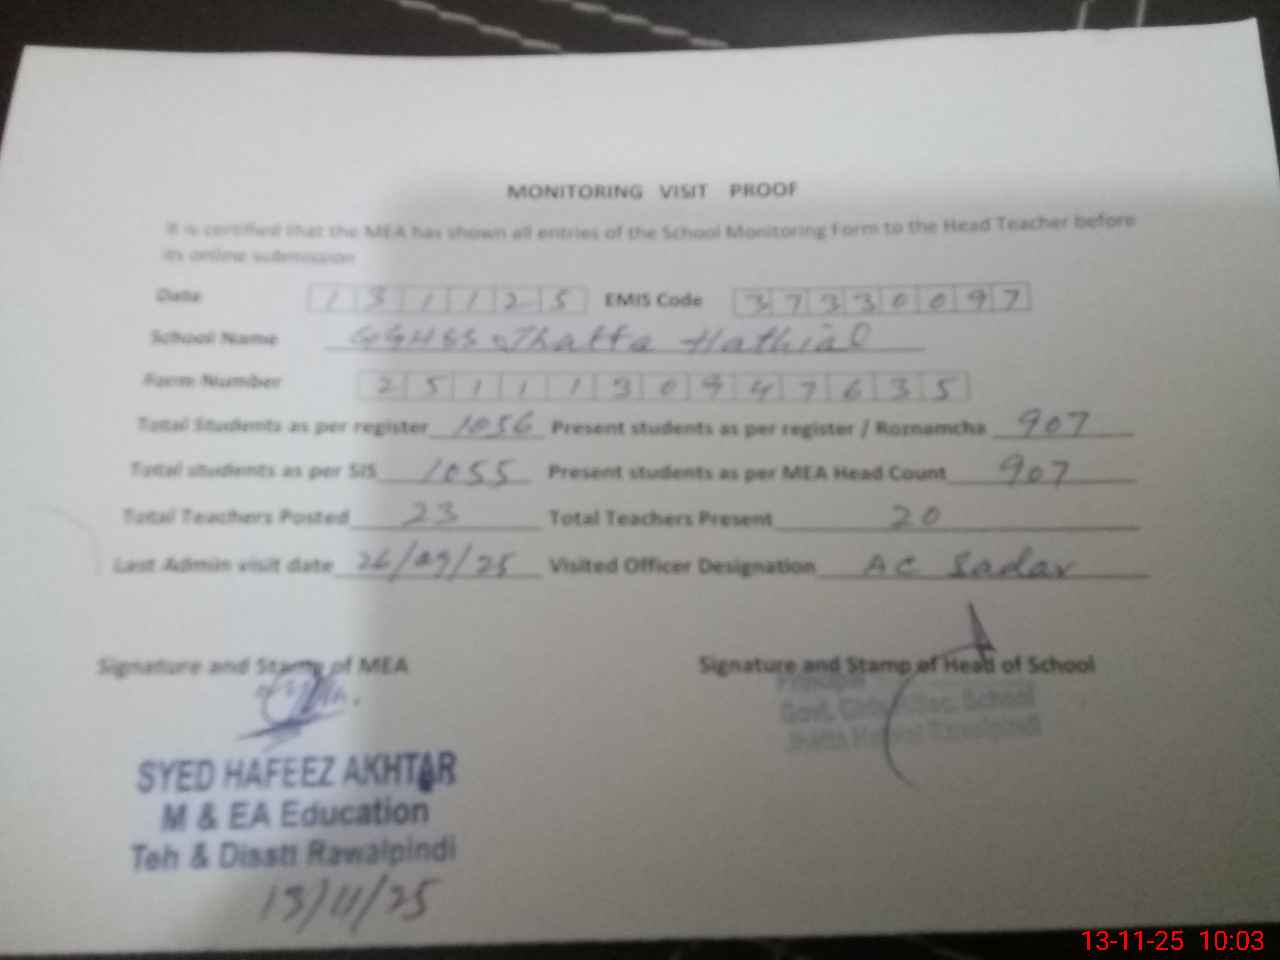 MONITORING VISIT PROOF
It is certified that the MEA has shown all entries of the School Monitoring Form to the Head Teacher before
its online submission
Date 131125 EMIS Code 37330097
School Name GGHSS Jhatta Hathial
Form Number 2511130947635
Total Students as per register 1056 Present students as per register / Roznamcha 907
Total students as per SIS 1055 Present students as per MEA Head Count 907
Total Teachers Posted 23 Total Teachers Present 20
Last Admin visit date 26/09/25 Visited Officer Designation AC Sadar
Signature and Stamp of MEA Signature and Stamp of Head of School
Principal
Govt. Sec. School
Rawalpindi
SYED HAFEEZ AKHTAR
M & EA Education
Teh & Disstt Rawalpindi
13/11/25
13-11-25 10:03